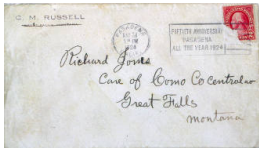 C. M. RUSSELL
PASADENA
1924
FIFTIETH ANNIVERSARY
PASADENA
ALL THE YEAR 1924
Richard Jones
Care of Como Co
Great Falls
Montana